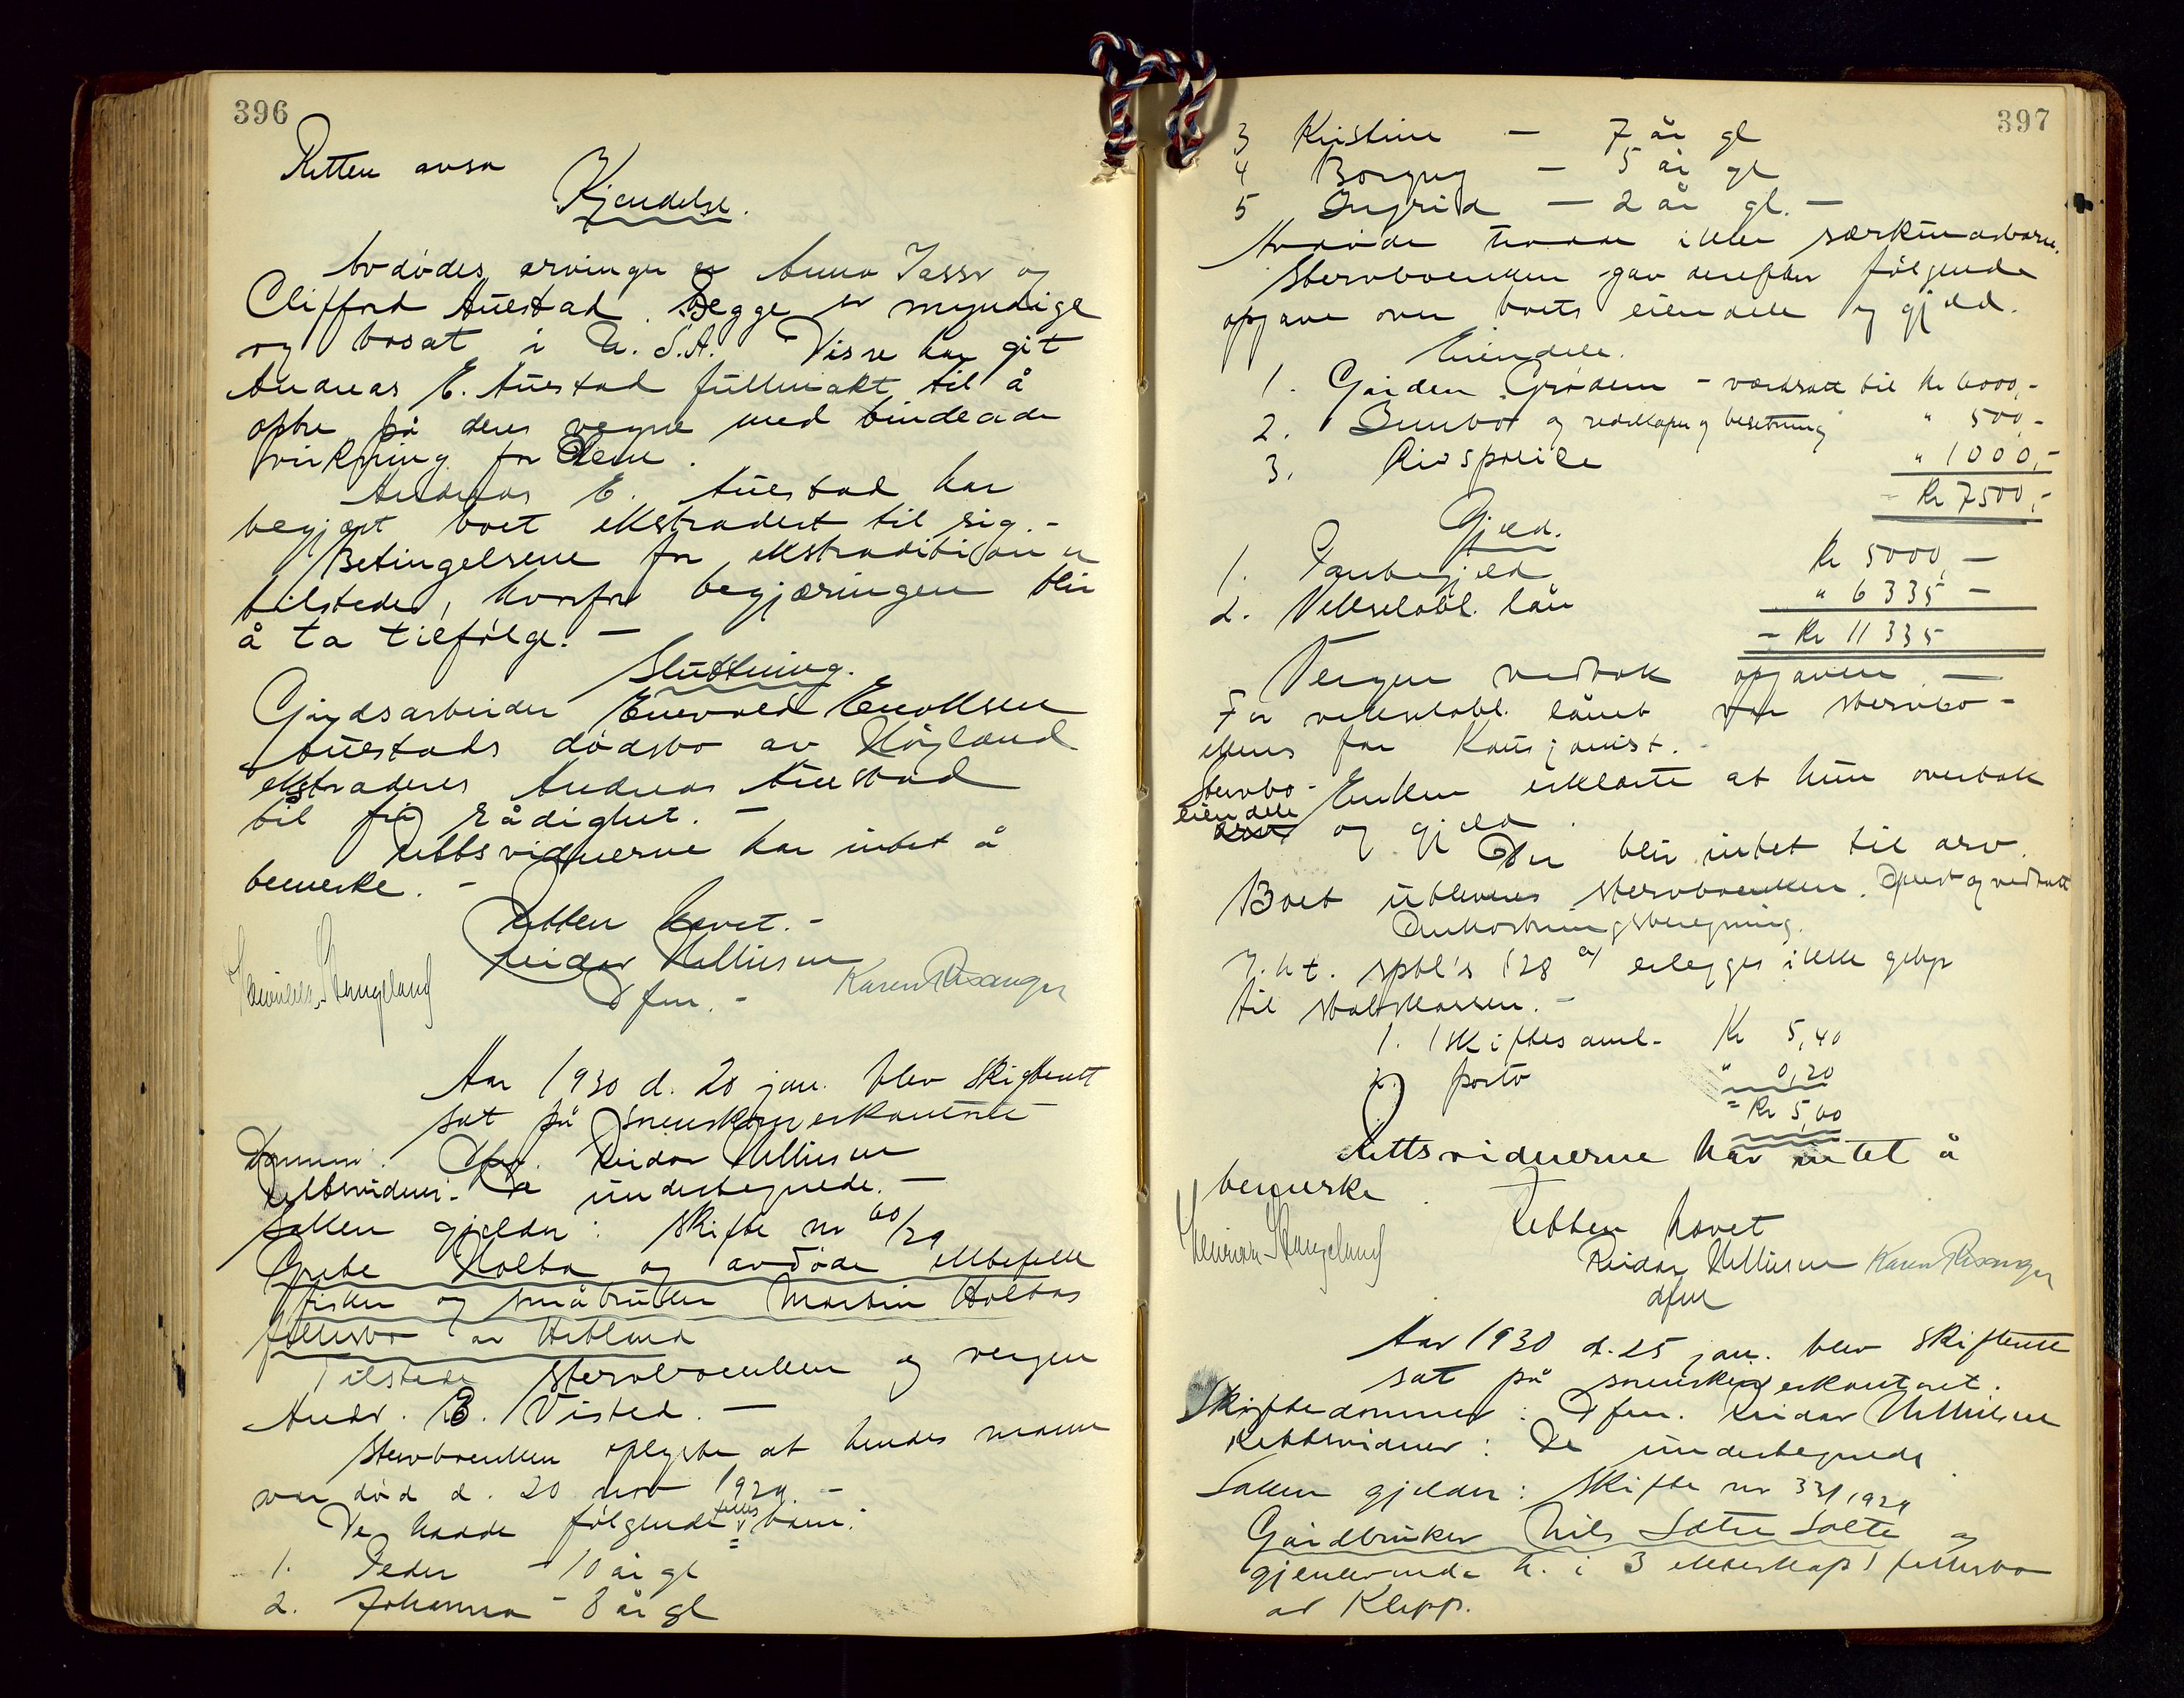 396
Retten avsa
Kjendelse.
Avdødes arvinger er Anna Jasse og
Clifford Auestad. Begge er myndige
og bosat i U.S.A. Disse har git
Andreas E. Auestad fullmakt til å
optre på deres vegne med bindende
virkning for dem.
Andreas E. Auestad har
begjært boet ekstradert til sig. -
Betingelsene for ekstradition er
tilstede, hvorfor begjæringen blir
å ta tilfølge. -
Slutning.
Gårdsarbeider Enevald Enoksen
Auestads dødsbo av Høyland
ekstraderes Andreas Auestad
til fri rådighet. -
Rettsvidnerne har intet å
bemerke. -
Retten hevet. -
Reidar Helliesen
dfm. -
Stangeland
Karen Risanger
Aar 1930 d. 20 jan. blev skifterett
sat på sorenskriverkontoret
Dommer: Dfm. Reidar Helliesen
Rettsvidner: De undertegnede. -
Saken gjelder: Skifte nr 60/29
Grete Holta og avdøde ektefelle
fisker og småbruker Martin Holtas
fellesbo av Hetland
Tilstede stervboenken og vergen
Andr. B. Visted. -
Stervboenken oplyste at hendes mann
var død d. 20 nov 1929. -
De hadde følgende felles barn:
1. Peder - 10 år gl
2. Johanna - 8 år gl
397
3 Kristine - 7 år gl
4 Borgny - 5 år gl
5 Ingrid - 2 år gl. -
Avdøde hadde ikke særkullsbarn.
Stervboenken gav derefter følgende
opgave over boets eiendele og gjeld.
Eiendele.
1. Gården Grødem - verdsatt til kr 6000,-
2. Innbo og redskaper og besetning " 500,-
3. Livspolise " 1000,-
= Kr 7500,-
Gjeld.
1. Pantegjeld kr 5000,-
2. Vekselobl. lån " 6335 -
= Kr 11335
Vergen vedtok opgaven -
For vekselobl. lånet var stervbo-
enkens far kausjonist. -
Stervbo-
Enken erklærte at hun overtok
eiendele
og gjeld.
Der blir intet til arv.
Boet utleveres stervboenken. Oplest og vedtatt
Omkostningsberegning.
I.h.t. sptl's § 28 erlegges ikke gebyr
til statskassen. -
1. 1 skiftesaml. Kr 5,40
2. porto " 0,20
= Kr 5,60
Rettsvidnerne har intet å
bemerke.
Retten hevet
Reidar Helliesen Karen Risanger
dfm
Stangeland
Aar 1930 d. 25 jan. blev skifterett
sat på sorenskriverkontoret.
Skiftedommer: Dfm. Reidar Helliesen
Rettsvidner: De undertegnede
Saken gjelder: Skifte nr 33/1929
Gårdbruker Nils Sætre Salte og
gjenlevende h. i 3 ekteskaps fellesbo
av Klepp.